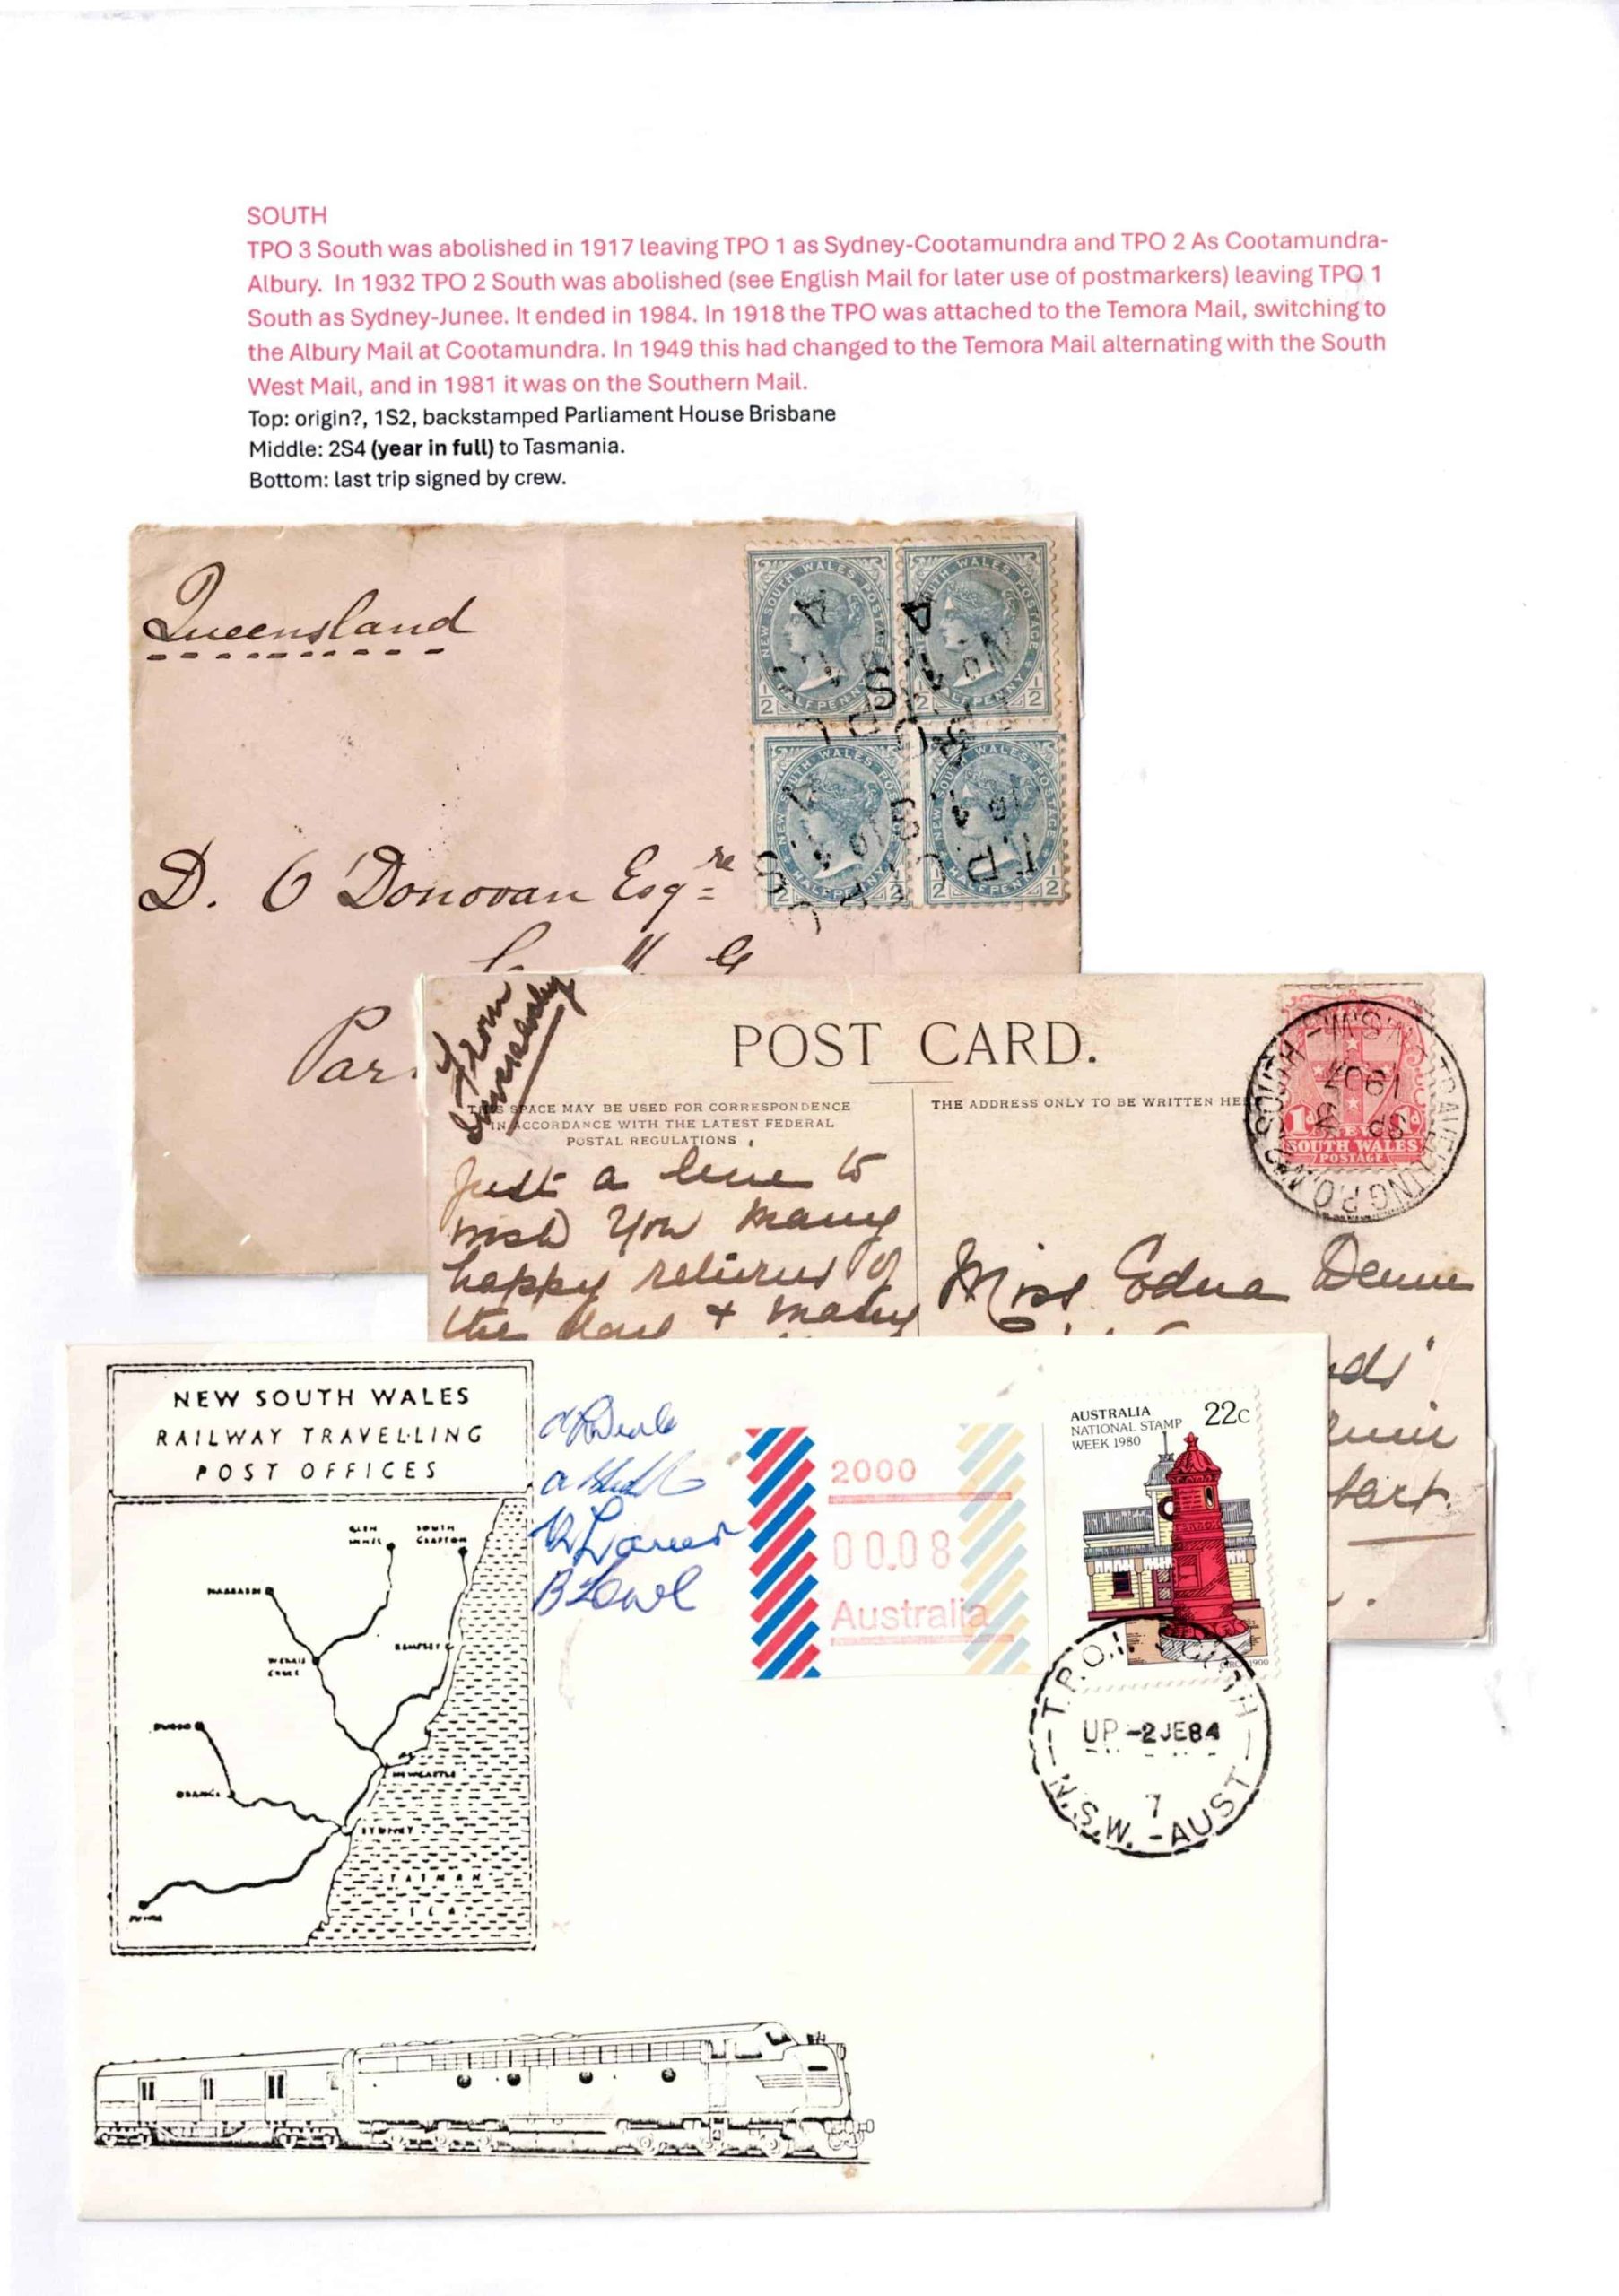 SOUTH
TPO 3 South was abolished in 1917 leaving TPO 1 as Sydney-Cootamundra and TPO 2 As Cootamundra-
Albury. In 1932 TPO 2 South was abolished (see English Mail for later use of postmarkers) leaving TPO 1
South as Sydney-Junee. It ended in 1984. In 1918 the TPO was attached to the Temora Mail, switching to
the Albury Mail at Cootamundra. In 1949 this had changed to the Temora Mail alternating with the South
West Mail, and in 1981 it was on the Southern Mail.
Top: origin?, 1S2, backstamped Parliament House Brisbane
Middle: 2S4 (year in full) to Tasmania.
Bottom: last trip signed by crew.
Queensland
NEW SOUTH WALES POSTAGE
HALFPENNY
NEW SOUTH WALES POSTAGE
HALFPENNY
NEW SOUTH WALES POSTAGE
HALFPENNY
NEW SOUTH WALES POSTAGE
HALFPENNY
D. O'Donovan Esqre
Par
From
POST CARD.
THIS SPACE MAY BE USED FOR CORRESPONDENCE
IN ACCORDANCE WITH THE LATEST FEDERAL
POSTAL REGULATIONS
THE ADDRESS ONLY TO BE WRITTEN HE
1d
SOUTH WALES
POSTAGE
TRAVELLING P.O. No 2 SOUTH - N.S.W.
SP 3
1907
Just a line to
wish you many
happy returns of
the day + many
Miss Edna
NEW SOUTH WALES
RAILWAY TRAVELLING
POST OFFICES
GLEN
INNES
SOUTH
GRAFTON
NARRABRI
KEMPSEY
WERRIS
CREEK
DUBBO
NEWCASTLE
ORANGE
SYDNEY
TASMAN
SEA
JUNEE
2000
00.08
Australia
AUSTRALIA
NATIONAL STAMP
WEEK 1980
22c
CIRCA 1900
T.P.O. 1 SOUTH
UP -2JE84
7
N.S.W. - AUST